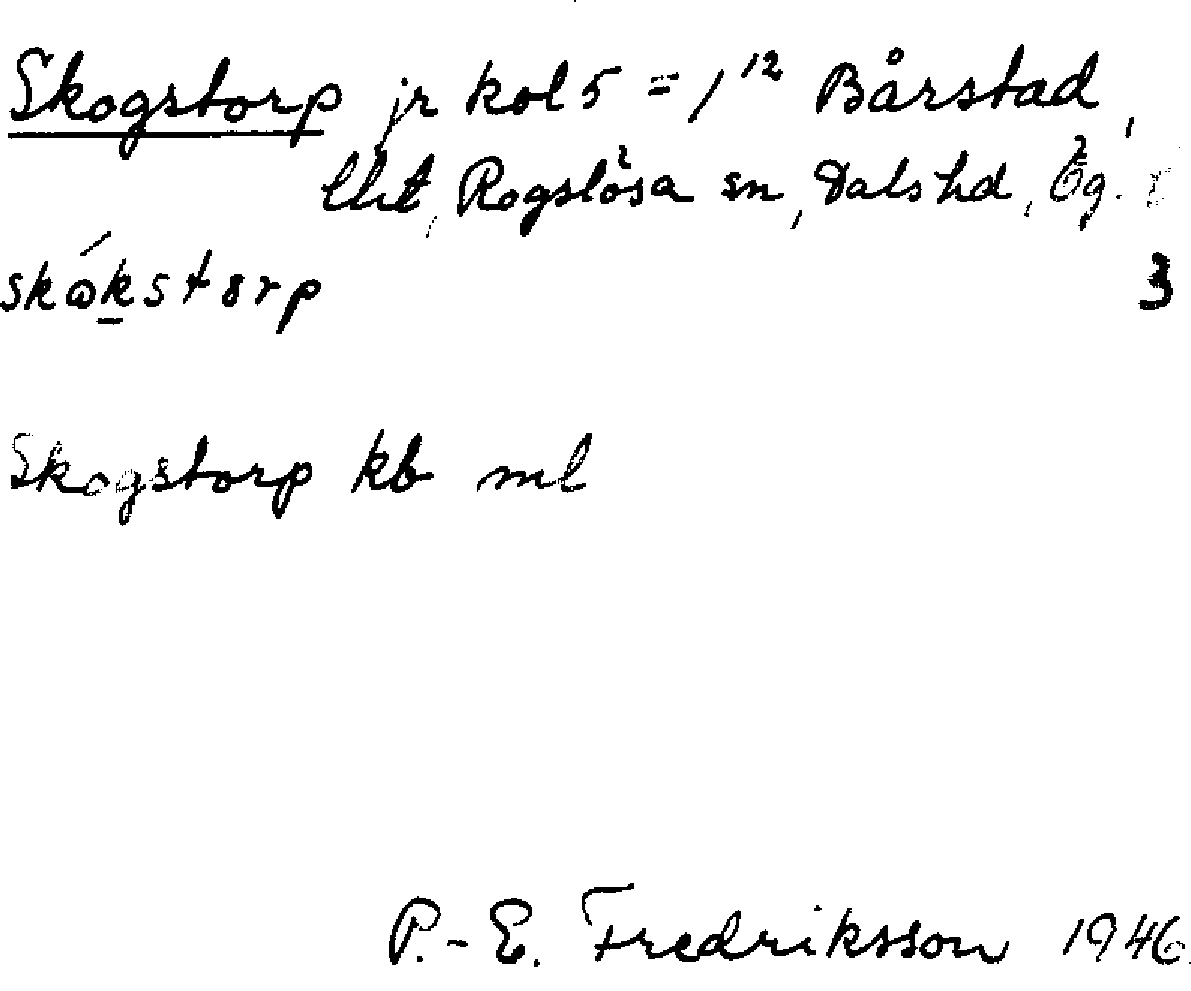 Skogstorp jr kol 5 = 1¹² Bårstad,
Rogslösa sn, Dals hd, Ög.
skokstorp 3
Skogstorp kb ml
P.-E. Fredriksson 1946.